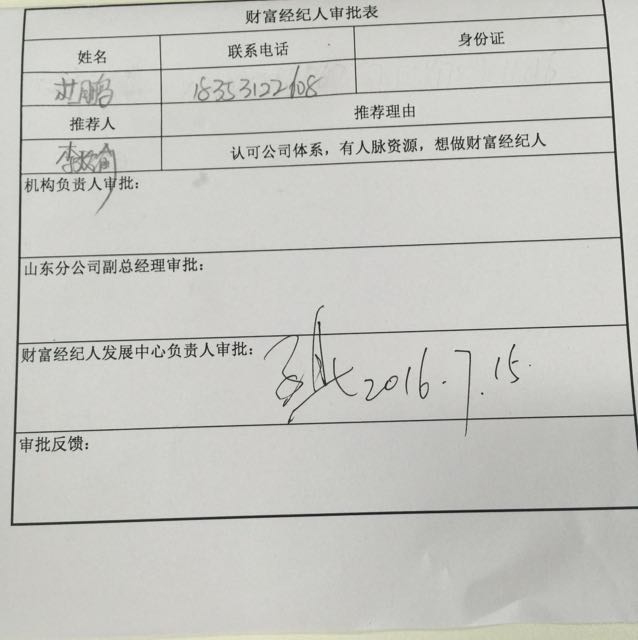 财富经纪人审批表
姓名 联系电话 身份证
18353122608
推荐人 推荐理由
认可公司体系，有人脉资源，想做财富经纪人
机构负责人审批：
山东分公司副总经理审批：
财富经纪人发展中心负责人审批： 2016.7.15.
审批反馈：